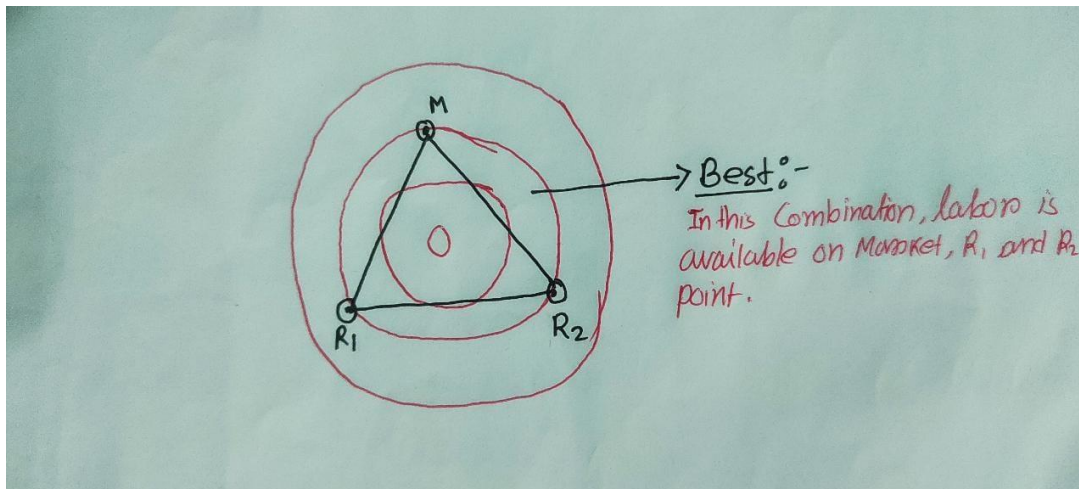 M
Best:-
In this Combination, labor is
available on Market, R1 and R2
point.
R1
R2